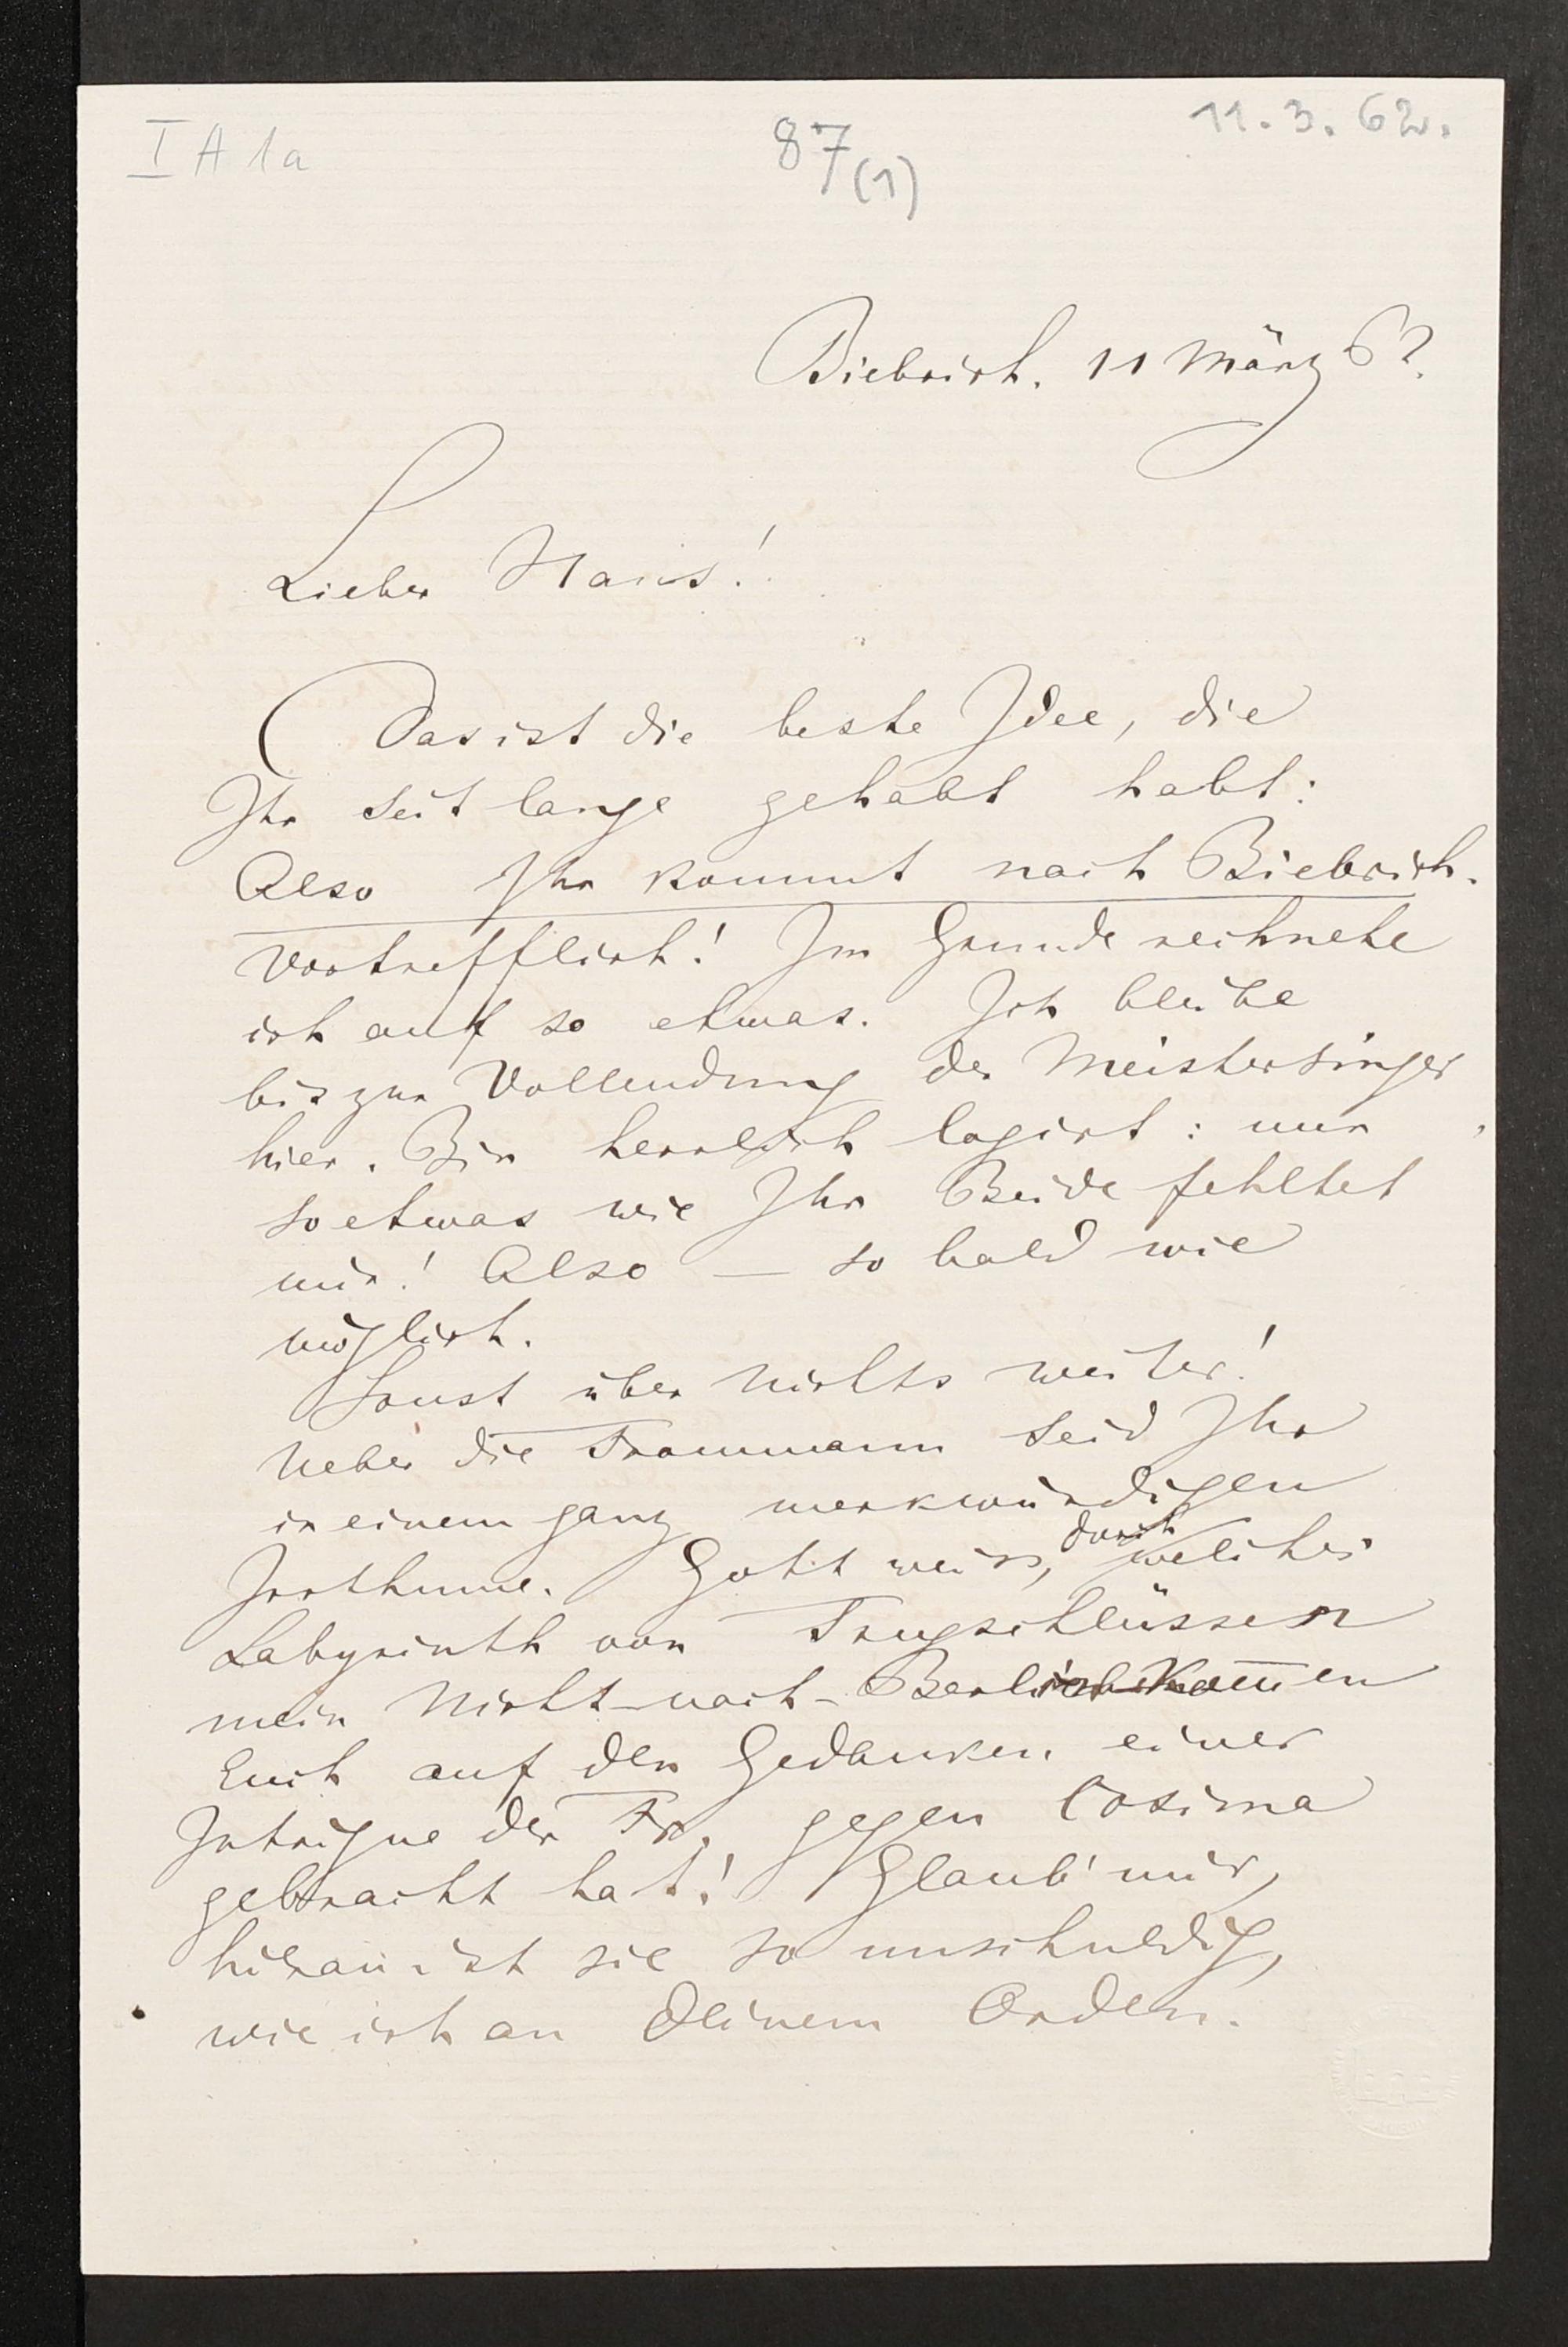 I A 1a
87 (1)
11. 3. 62.
Biebrich. 11 März 62.
Lieber Hans!
Das ist die beste Idee, die
Ihr seit lange gehabt habt:
Also Ihr kommt nach Biebrich.
Vortrefflich! Im Grunde rechnete
ich auf so etwas. Ich bleibe
bis zur Vollendung der Meistersinger
hier. Bin herrlich logirt: nur
so etwas wie Ihr Beide fehltet
mir! Also — so bald wie
möglich.
Sonst über Nichts weiter!
Ueber die Frommann seid Ihr
in einem ganz merkwürdigen
Irrthume. Gott weiss, durch welches
Labyrinth von Trugschlüssen
mein Nicht-nach-Berlin-Kommen
Euch auf den Gedanken einer
Intrigue der Fr. gegen Cosima
gebracht hat! Glaub' mir,
hieran ist sie so unschuldig,
wie ich an Deinem Orden.